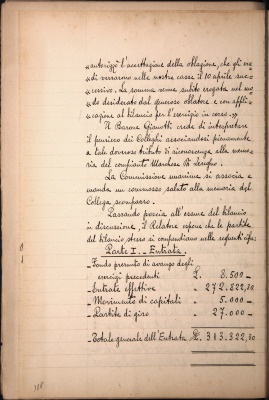 «autorizzò l'accettazione della oblazione, che gli ere
di versarono nelle nostre casse il 10 aprile suc-
cessivo. La somma venne subito erogata nel mo
do desiderato dal generoso oblatore e con appli-
cazione al bilancio per l'esercizio in corso.»»
Il Barone Gianotti crede di interpretare
il pensiero dei Colleghi associandosi pienamente
a tale doveroso tributo di riconoscenza alla memo-
ria del compianto Marchese
La Commissione unanime si associa e
manda un commosso saluto alla memoria del
Collega scomparso.
Passando poscia all'esame del bilancio
in discussione, il Relatore espone che le partite
del bilancio stesso si compendiano nelle seguenti cifre:
Parte I. - Entrata.
- Fondo presunto di avanzo degli
esercizi precedenti L. 8.500 -
- Entrate effettive " 272.822,80
- Movimento di capitali " 5.000 -
- Partite di giro " 27.000 -
Totale generale dell'Entrata L. 313.322,80